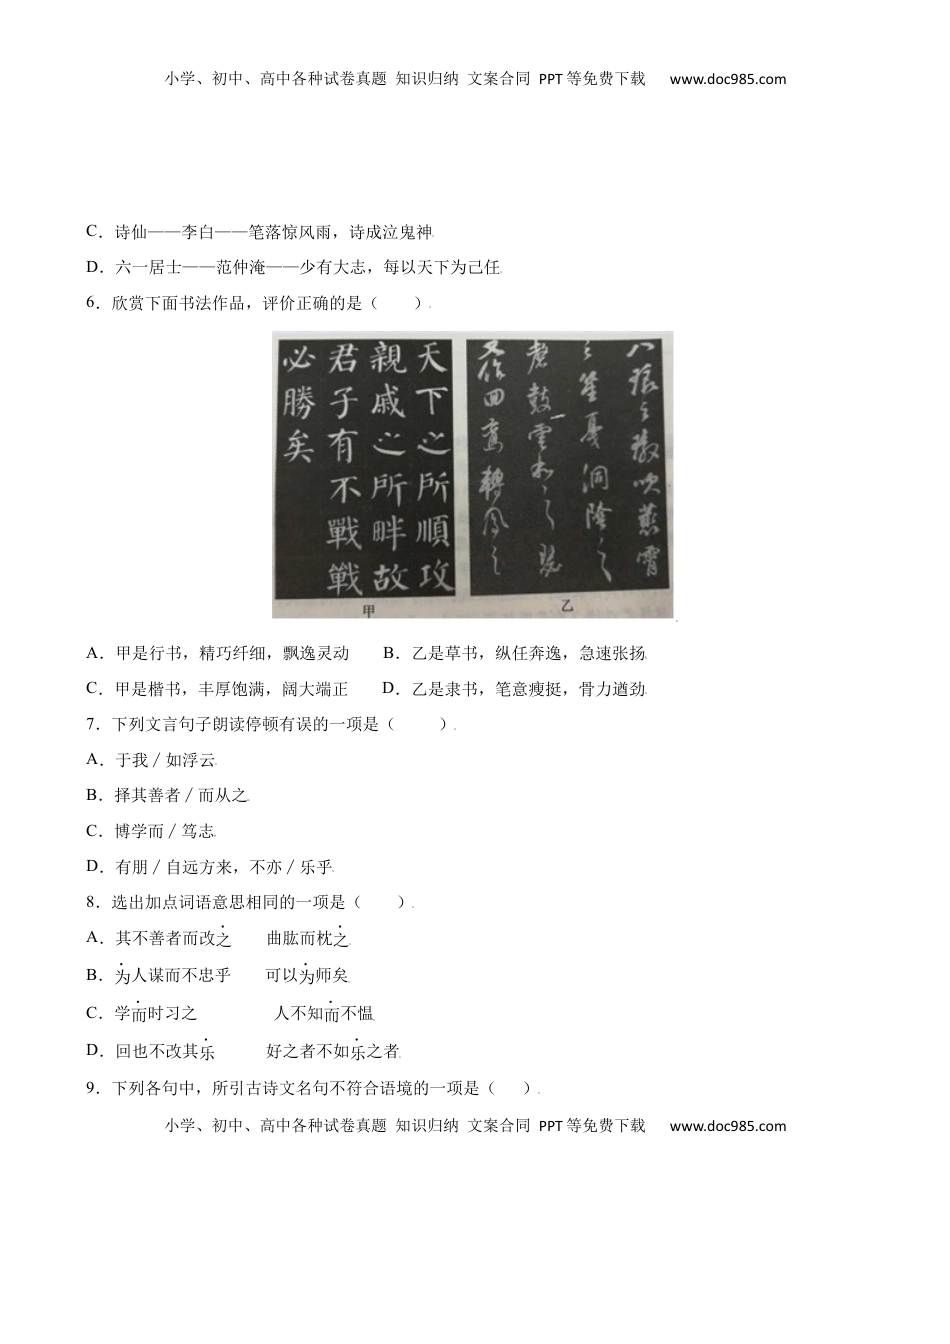 小学、初中、高中各种试卷真题 知识归纳 文案合同 PPT 等免费下载 www.doc985.com
C．诗仙——李白——笔落惊风雨，诗成泣鬼神
D．六一居士——范仲淹——少有大志，每以天下为己任
6．欣赏下面书法作品，评价正确的是（ ）
天下之所順攻
親戚之所畔故
君子有不戰戰
必勝矣
甲
乙
A．甲是行书，精巧纤细，飘逸灵动 B．乙是草书，纵任奔逸，急速张扬
C．甲是楷书，丰厚饱满，阔大端正 D．乙是隶书，笔意瘦挺，骨力遒劲
7．下列文言句子朗读停顿有误的一项是（ ）
A．于我／如浮云
B．择其善者／而从之
C．博学而／笃志
D．有朋／自远方来，不亦／乐乎
8．选出加点词语意思相同的一项是（ ）
A．其不善者而改之 曲肱而枕之
B．为人谋而不忠乎 可以为师矣
C．学而时习之 人不知而不愠
D．回也不改其乐 好之者不如乐之者
9．下列各句中，所引古诗文名句不符合语境的一项是（ ）
小学、初中、高中各种试卷真题 知识归纳 文案合同 PPT 等免费下载 www.doc985.com